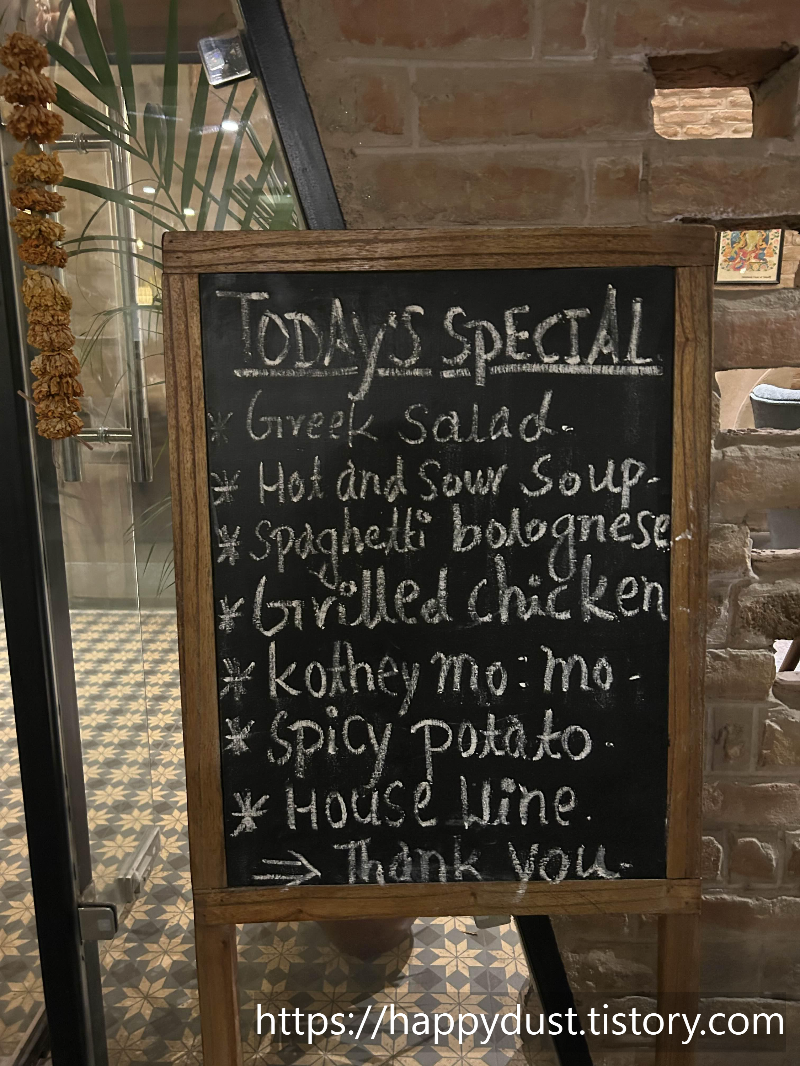 TODAY'S SPECIAL
* Greek Salad.
* Hot and Sour Soup.
* Spaghetti bolognese
* Grilled chicken
* kothey mo:mo -
* Spicy potato.
* House Wine.
⇒ Thank you.
https://happydust.tistory.com